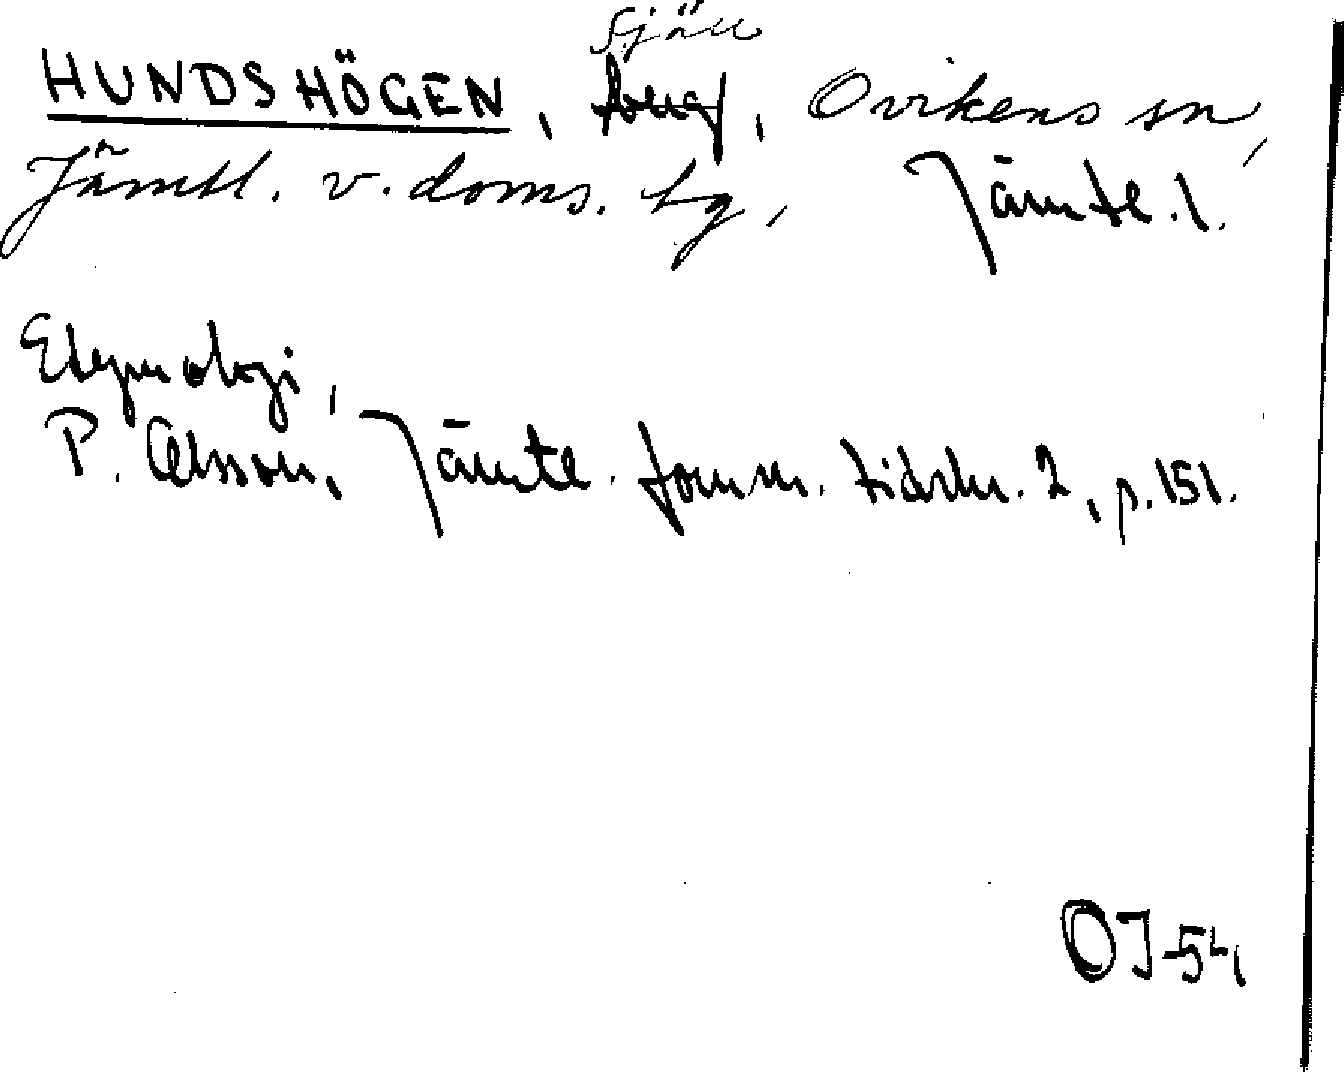 fjäll
HUNDSHÖGEN, berg, Ovikens sn,
Jämtl. v. doms. tg, Jämtl. l.
Etymologi,
P. Olsson, Jämtl. fornm. tidskr. 2, p. 151.
OJ-54